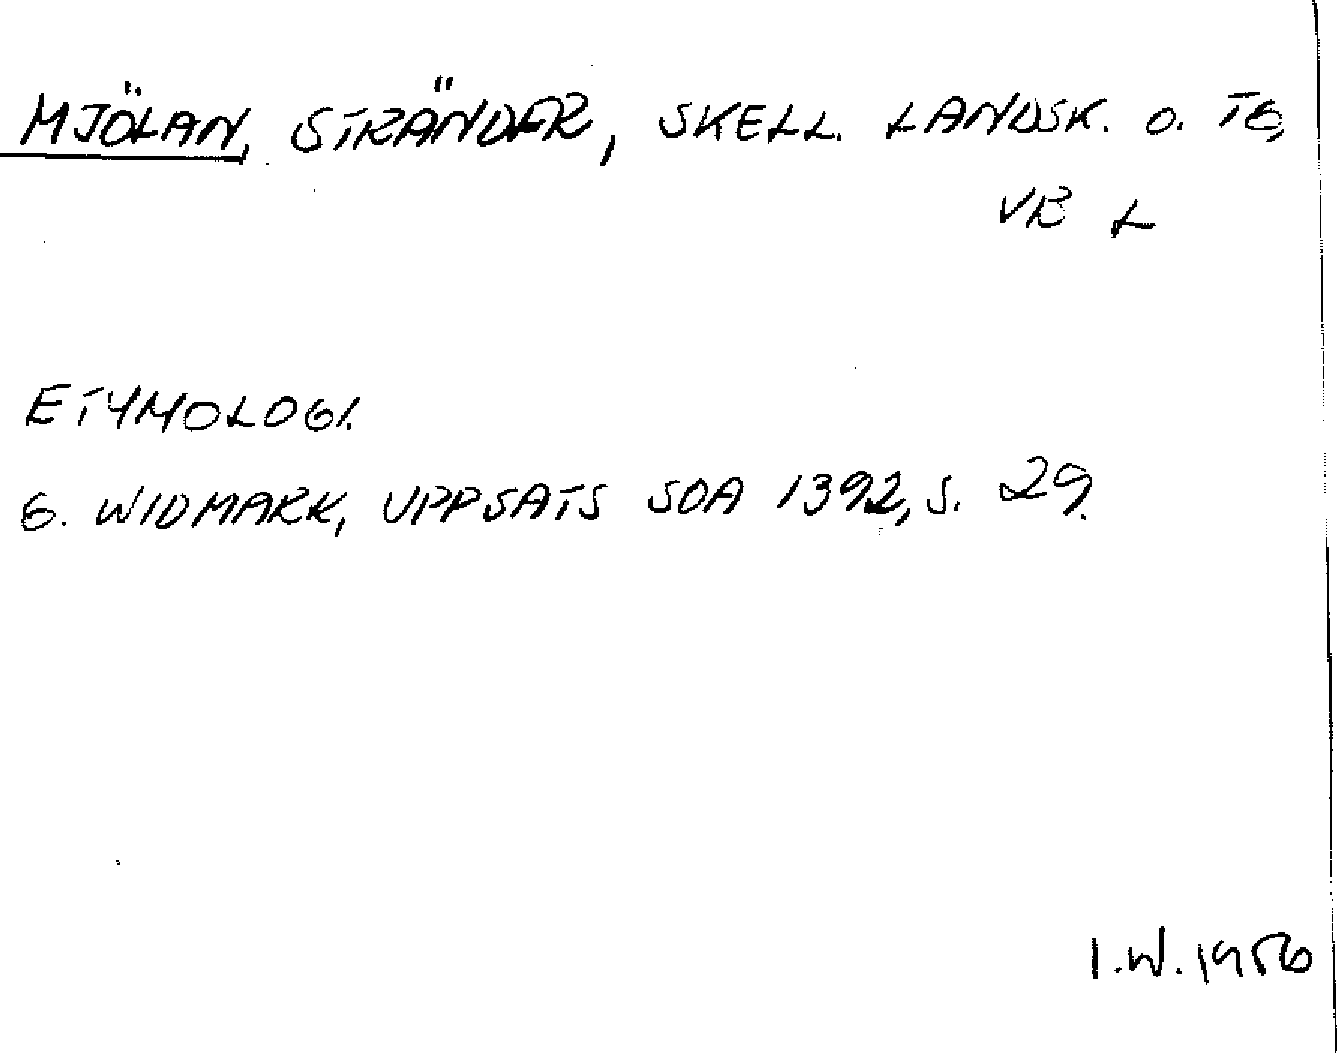 MJÖLAN, STRÄNDER, SKELL. LANDSK. O. TG,
VB L
ETYMOLOGI.
G. WIDMARK, UPPSATS SOA 1392, S. 29.
I.W. 1956